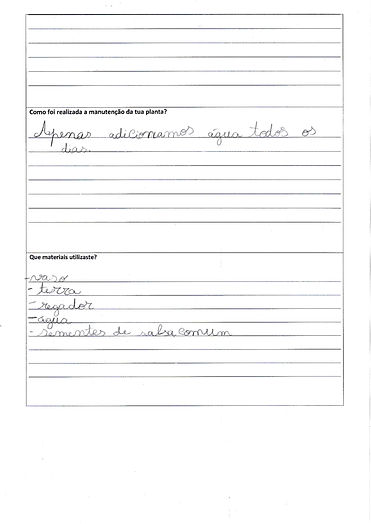 Como foi realizada a manutenção da tua planta?
Apenas adicionamos água todos os
dias.
Que materiais utilizaste?
-vaso
- terra
- regador
- água
- sementes de salsa comum